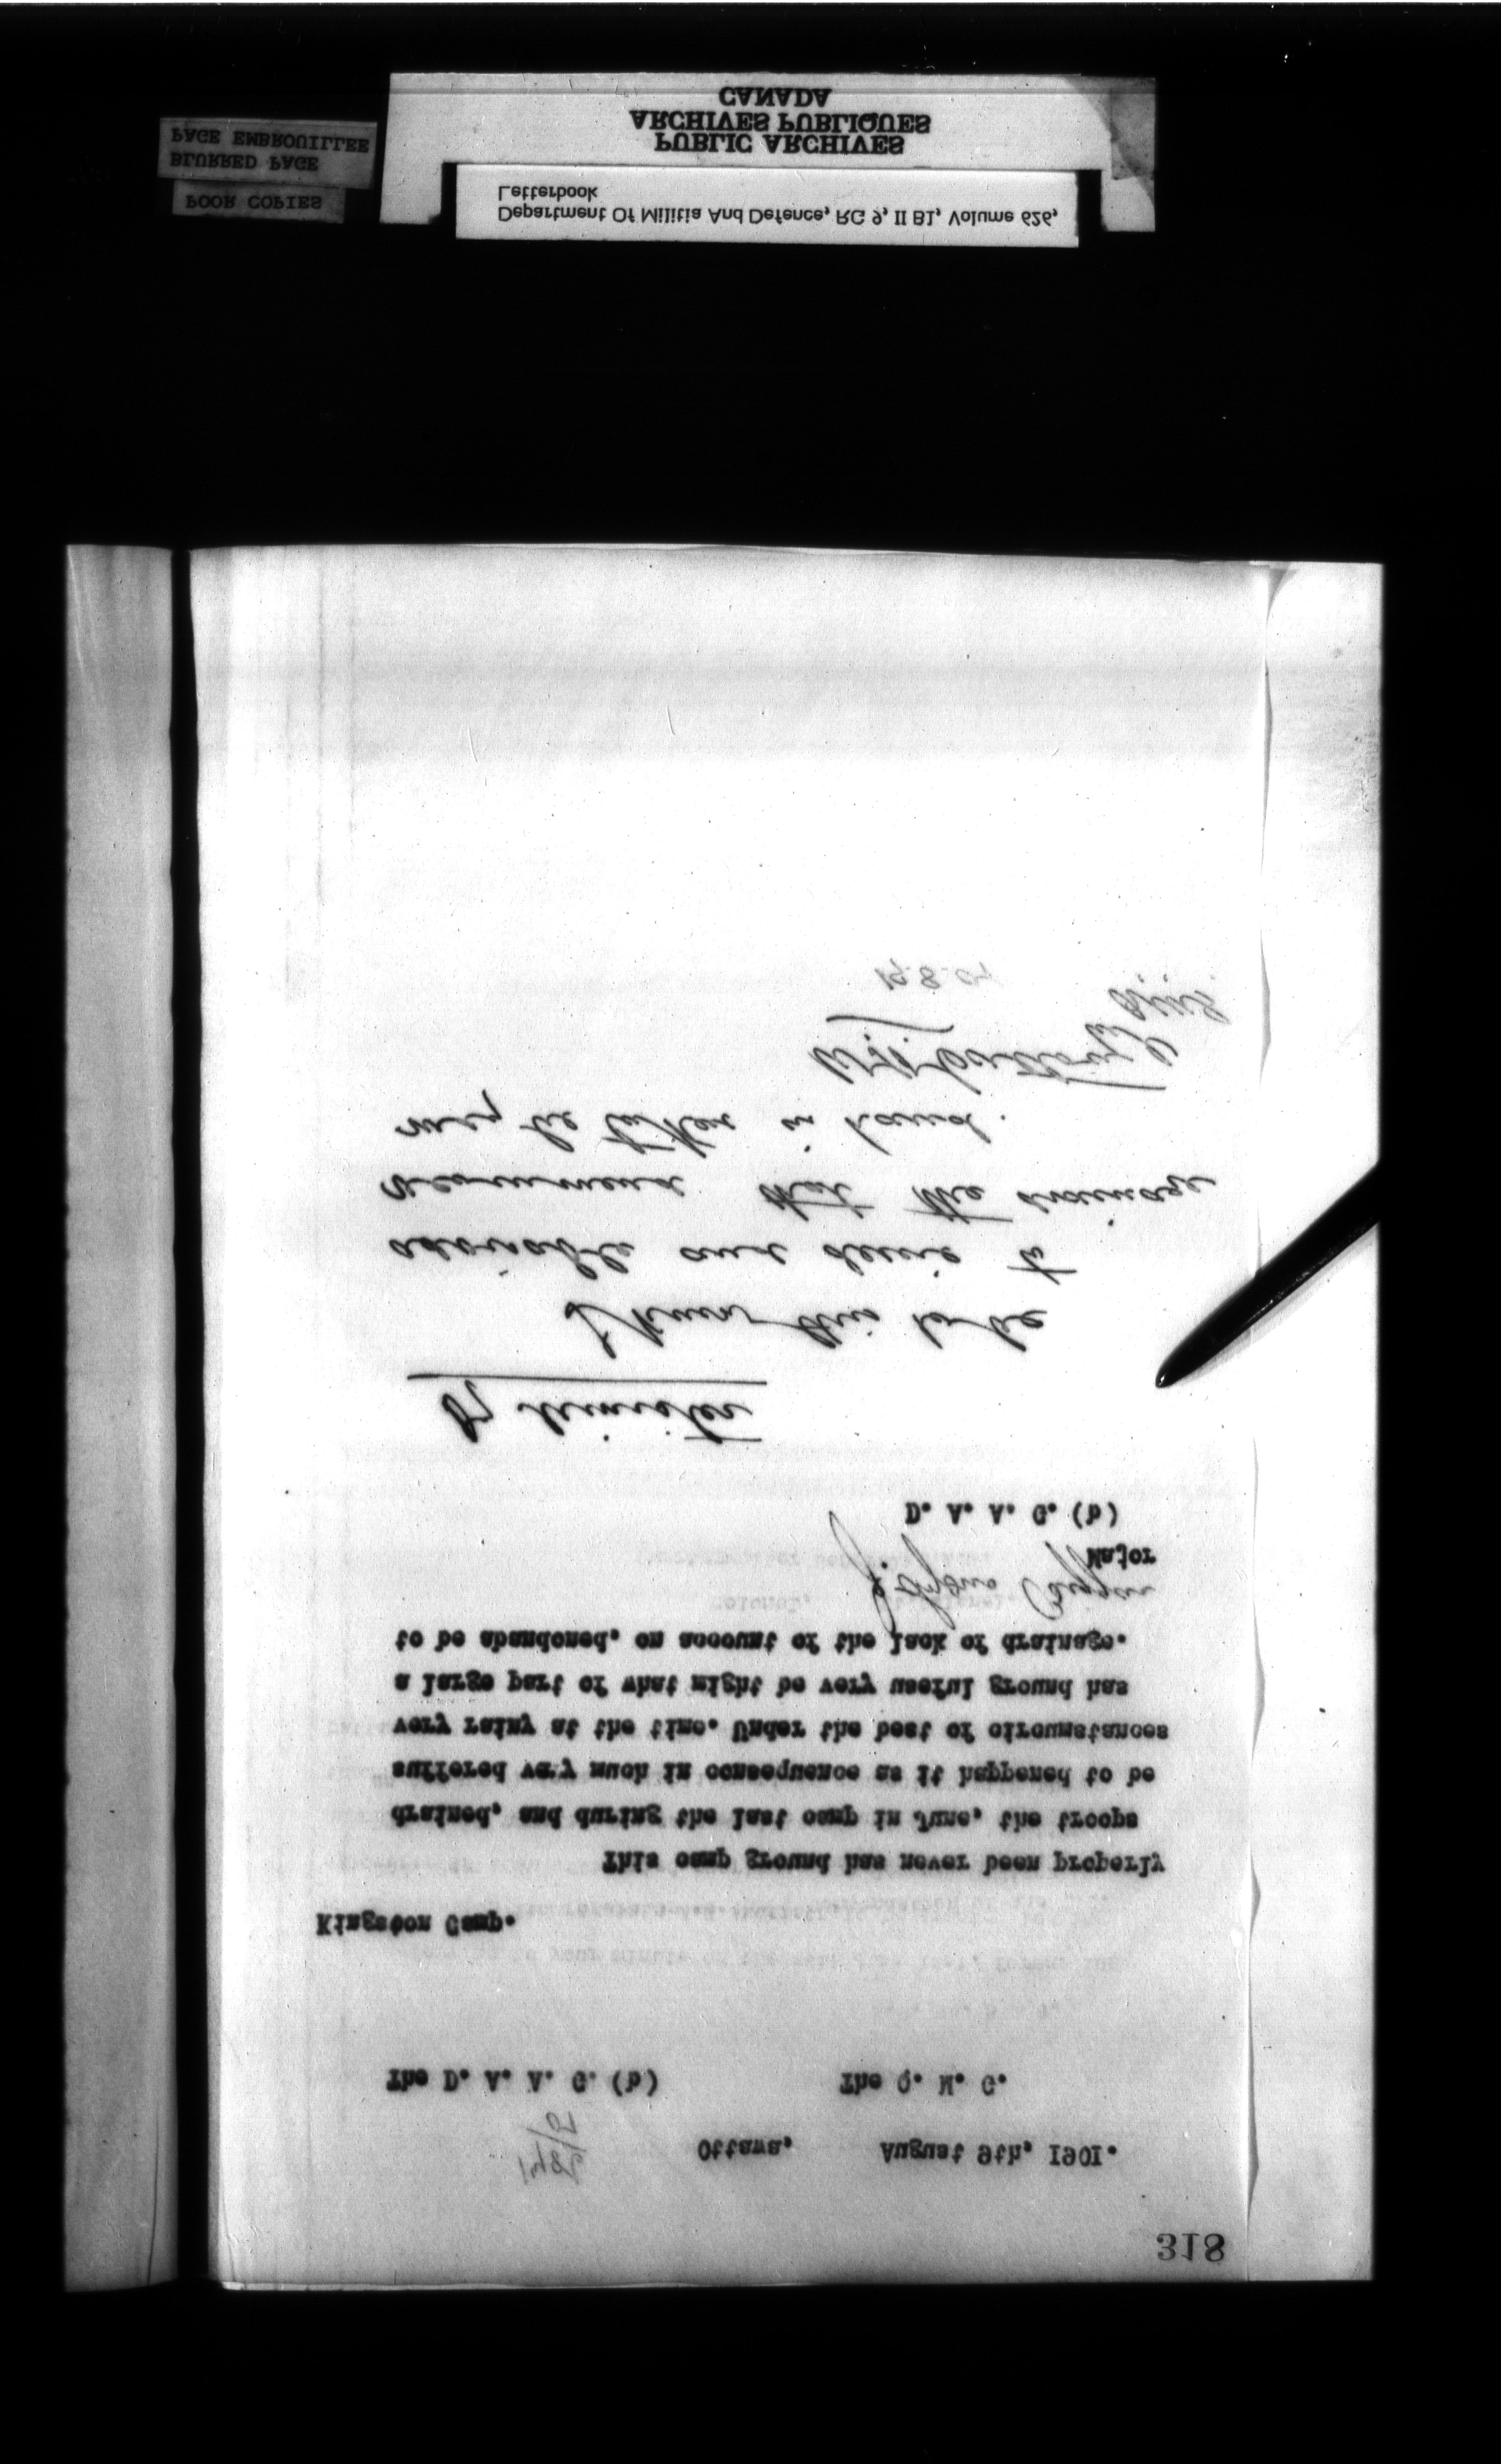 PUBLIC ARCHIVES
ARCHIVES PUBLIQUES
CANADA
Department Of Militia And Defence, RG 9, II B1, Volume 626,
Letterbook
POOR COPIES
BLURRED PAGE
PAGE EMBROUILLEE
318
Ottawa, August 9th, I90I.
The D. A. A. G. (b) The Q. M. G.
Kingston Camp.
This camp ground has never been properly
drained, and during the last camp in June, the troops
suffered very much in consequence as it happened to be
very rainy at the time. Under the best of circumstances
a large part of what might be very useful ground has
to be abandoned, on account of the lack of drainage.
Major
D. A. A. G. (b)
Minister
I know this to be
advisable and desire to
recommend that the drainage
may be taken in hand.